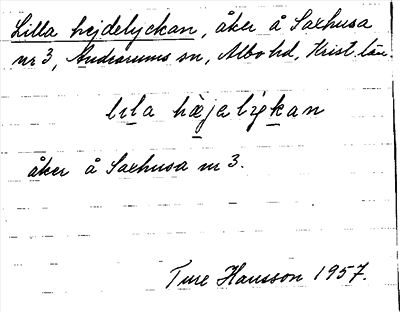 Lilla hejdelyckan, åker å Saxhusa
nr 3, Andrarums sn, Albo hd, Krist. län.
lıla hæjalykan
åker å Saxhusa nr 3.
Ture Hansson 1957.